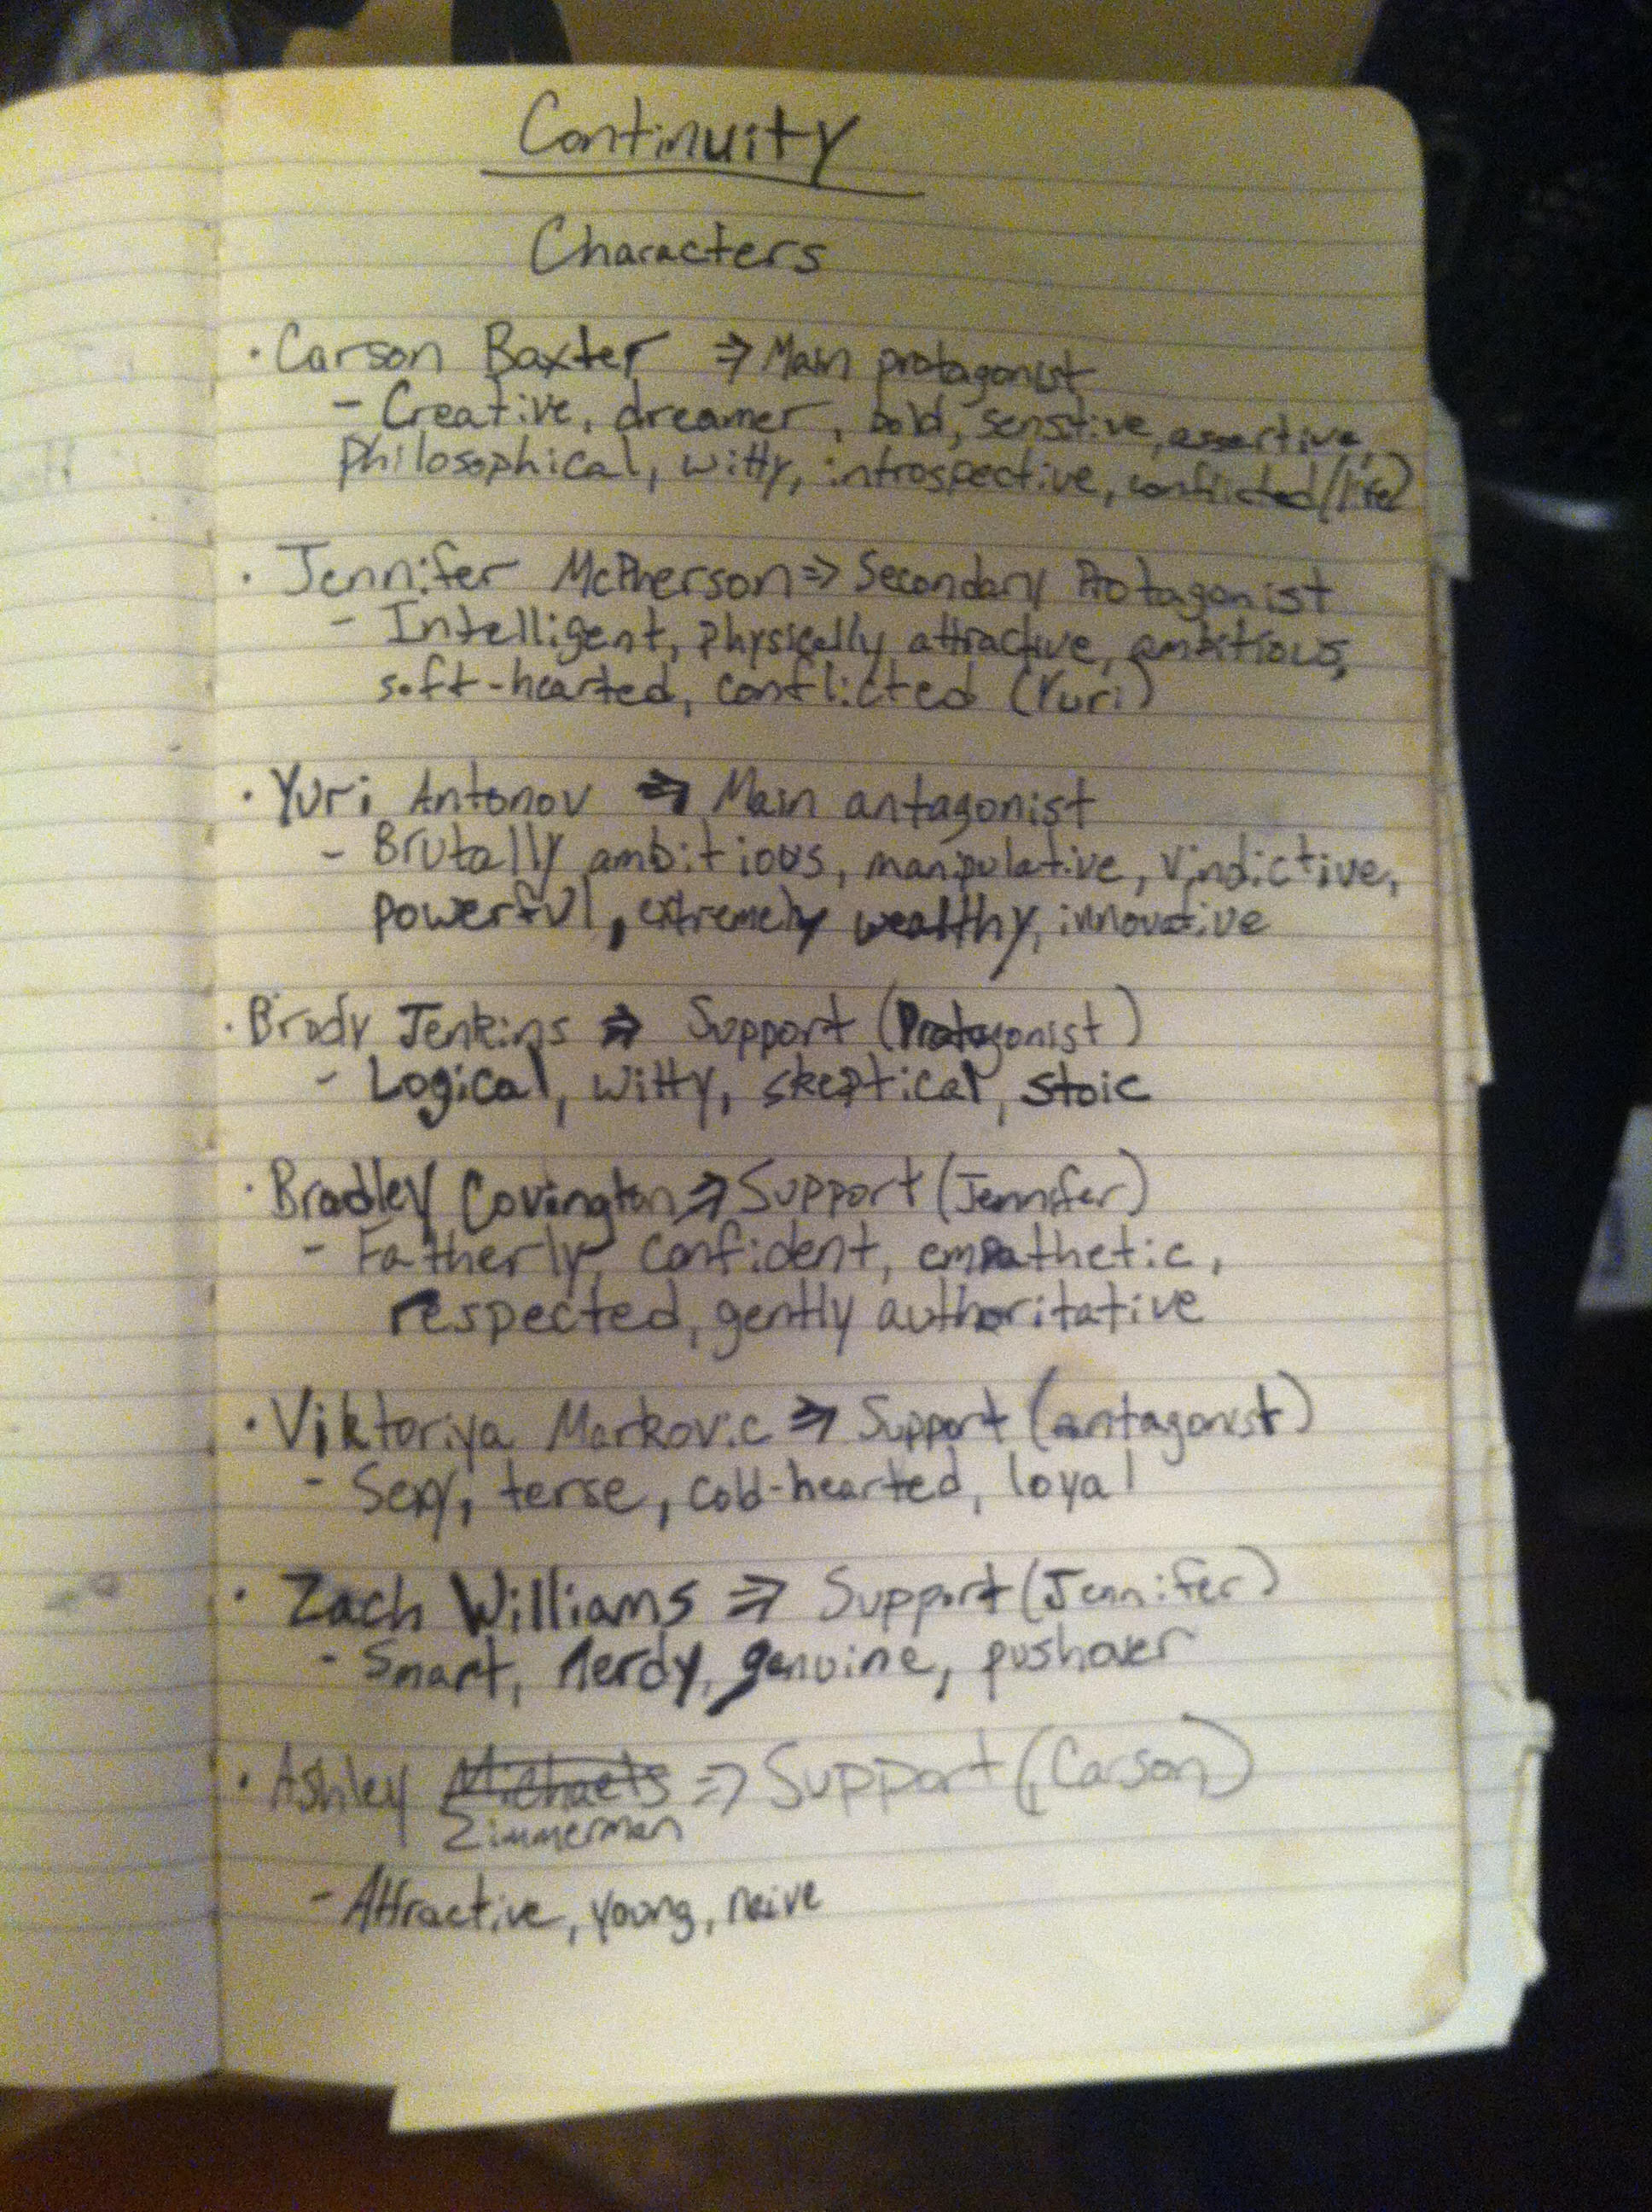 Continuity
Characters
· Carson Baxter ⇒ Main protagonist
- Creative, dreamer, bold, sensitive, assertive,
philosophical, witty, introspective, conflicted (life)
· Jennifer McPherson ⇒ Secondary Protagonist
- Intelligent, physically attractive, ambitious,
soft-hearted, conflicted (Yuri)
· Yuri Antonov ⇒ Main antagonist
- Brutally ambitious, manipulative, vindictive,
powerful, extremely wealthy, innovative
· Brody Jenkins ⇒ Support (Protagonist)
- Logical, witty, skeptical, stoic
· Bradley Covington ⇒ Support (Jennifer)
- Fatherly, confident, empathetic,
respected, gently authoritative
· Viktoriya Markovic ⇒ Support (antagonist)
- Sexy, terse, cold-hearted, loyal
· Zach Williams ⇒ Support (Jennifer)
- Smart, nerdy, genuine, pushover
· Ashley Michaels ⇒ Support (Carson)
Zimmerman
- Attractive, young, naive